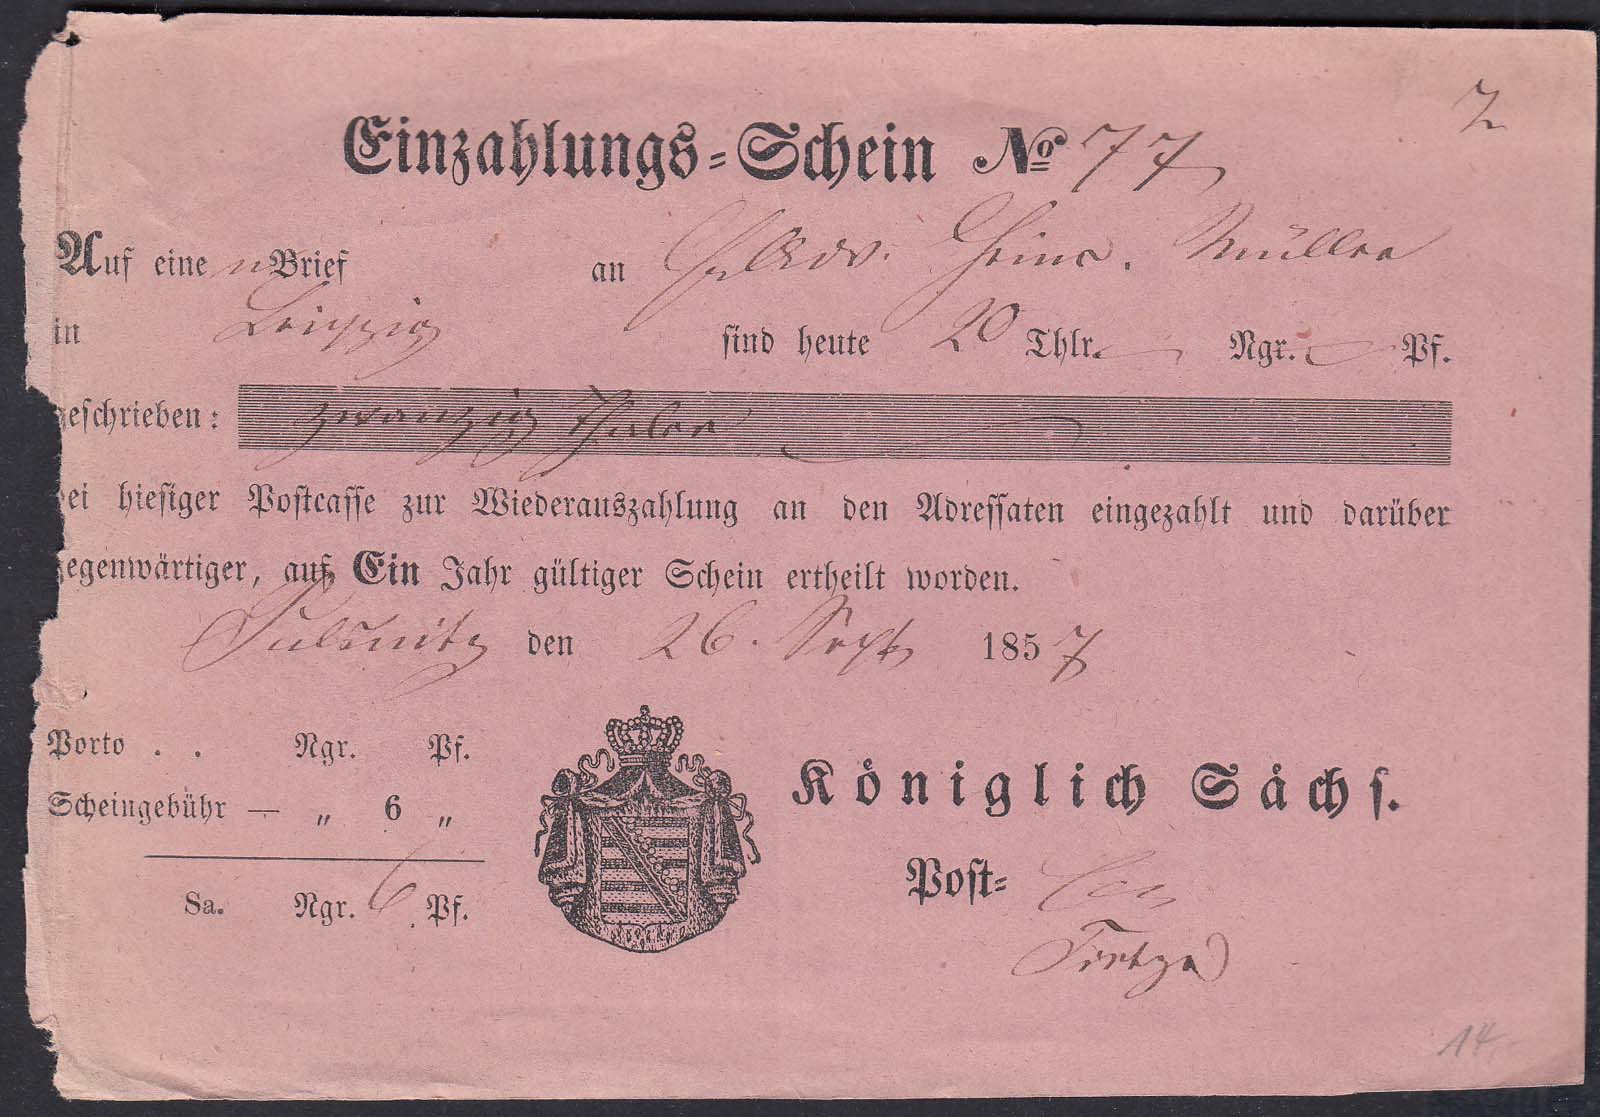 7
Einzahlungs-Schein No 77
Auf eine n Brief an Heinr. Müller
in Leipzig sind heute 20 Thlr. — Ngr. — Pf.
geschrieben: zwanzig Thaler
bei hiesiger Postcasse zur Wiederauszahlung an den Adressaten eingezahlt und darüber
gegenwärtiger, auf Ein Jahr gültiger Schein ertheilt worden.
Pulsnitz den 26. Sept 1857
Porto . . Ngr. Pf.
Scheingebühr — „ 6 „
Sa. Ngr. 6 Pf.
Königlich Sächs.
Post-
14.-